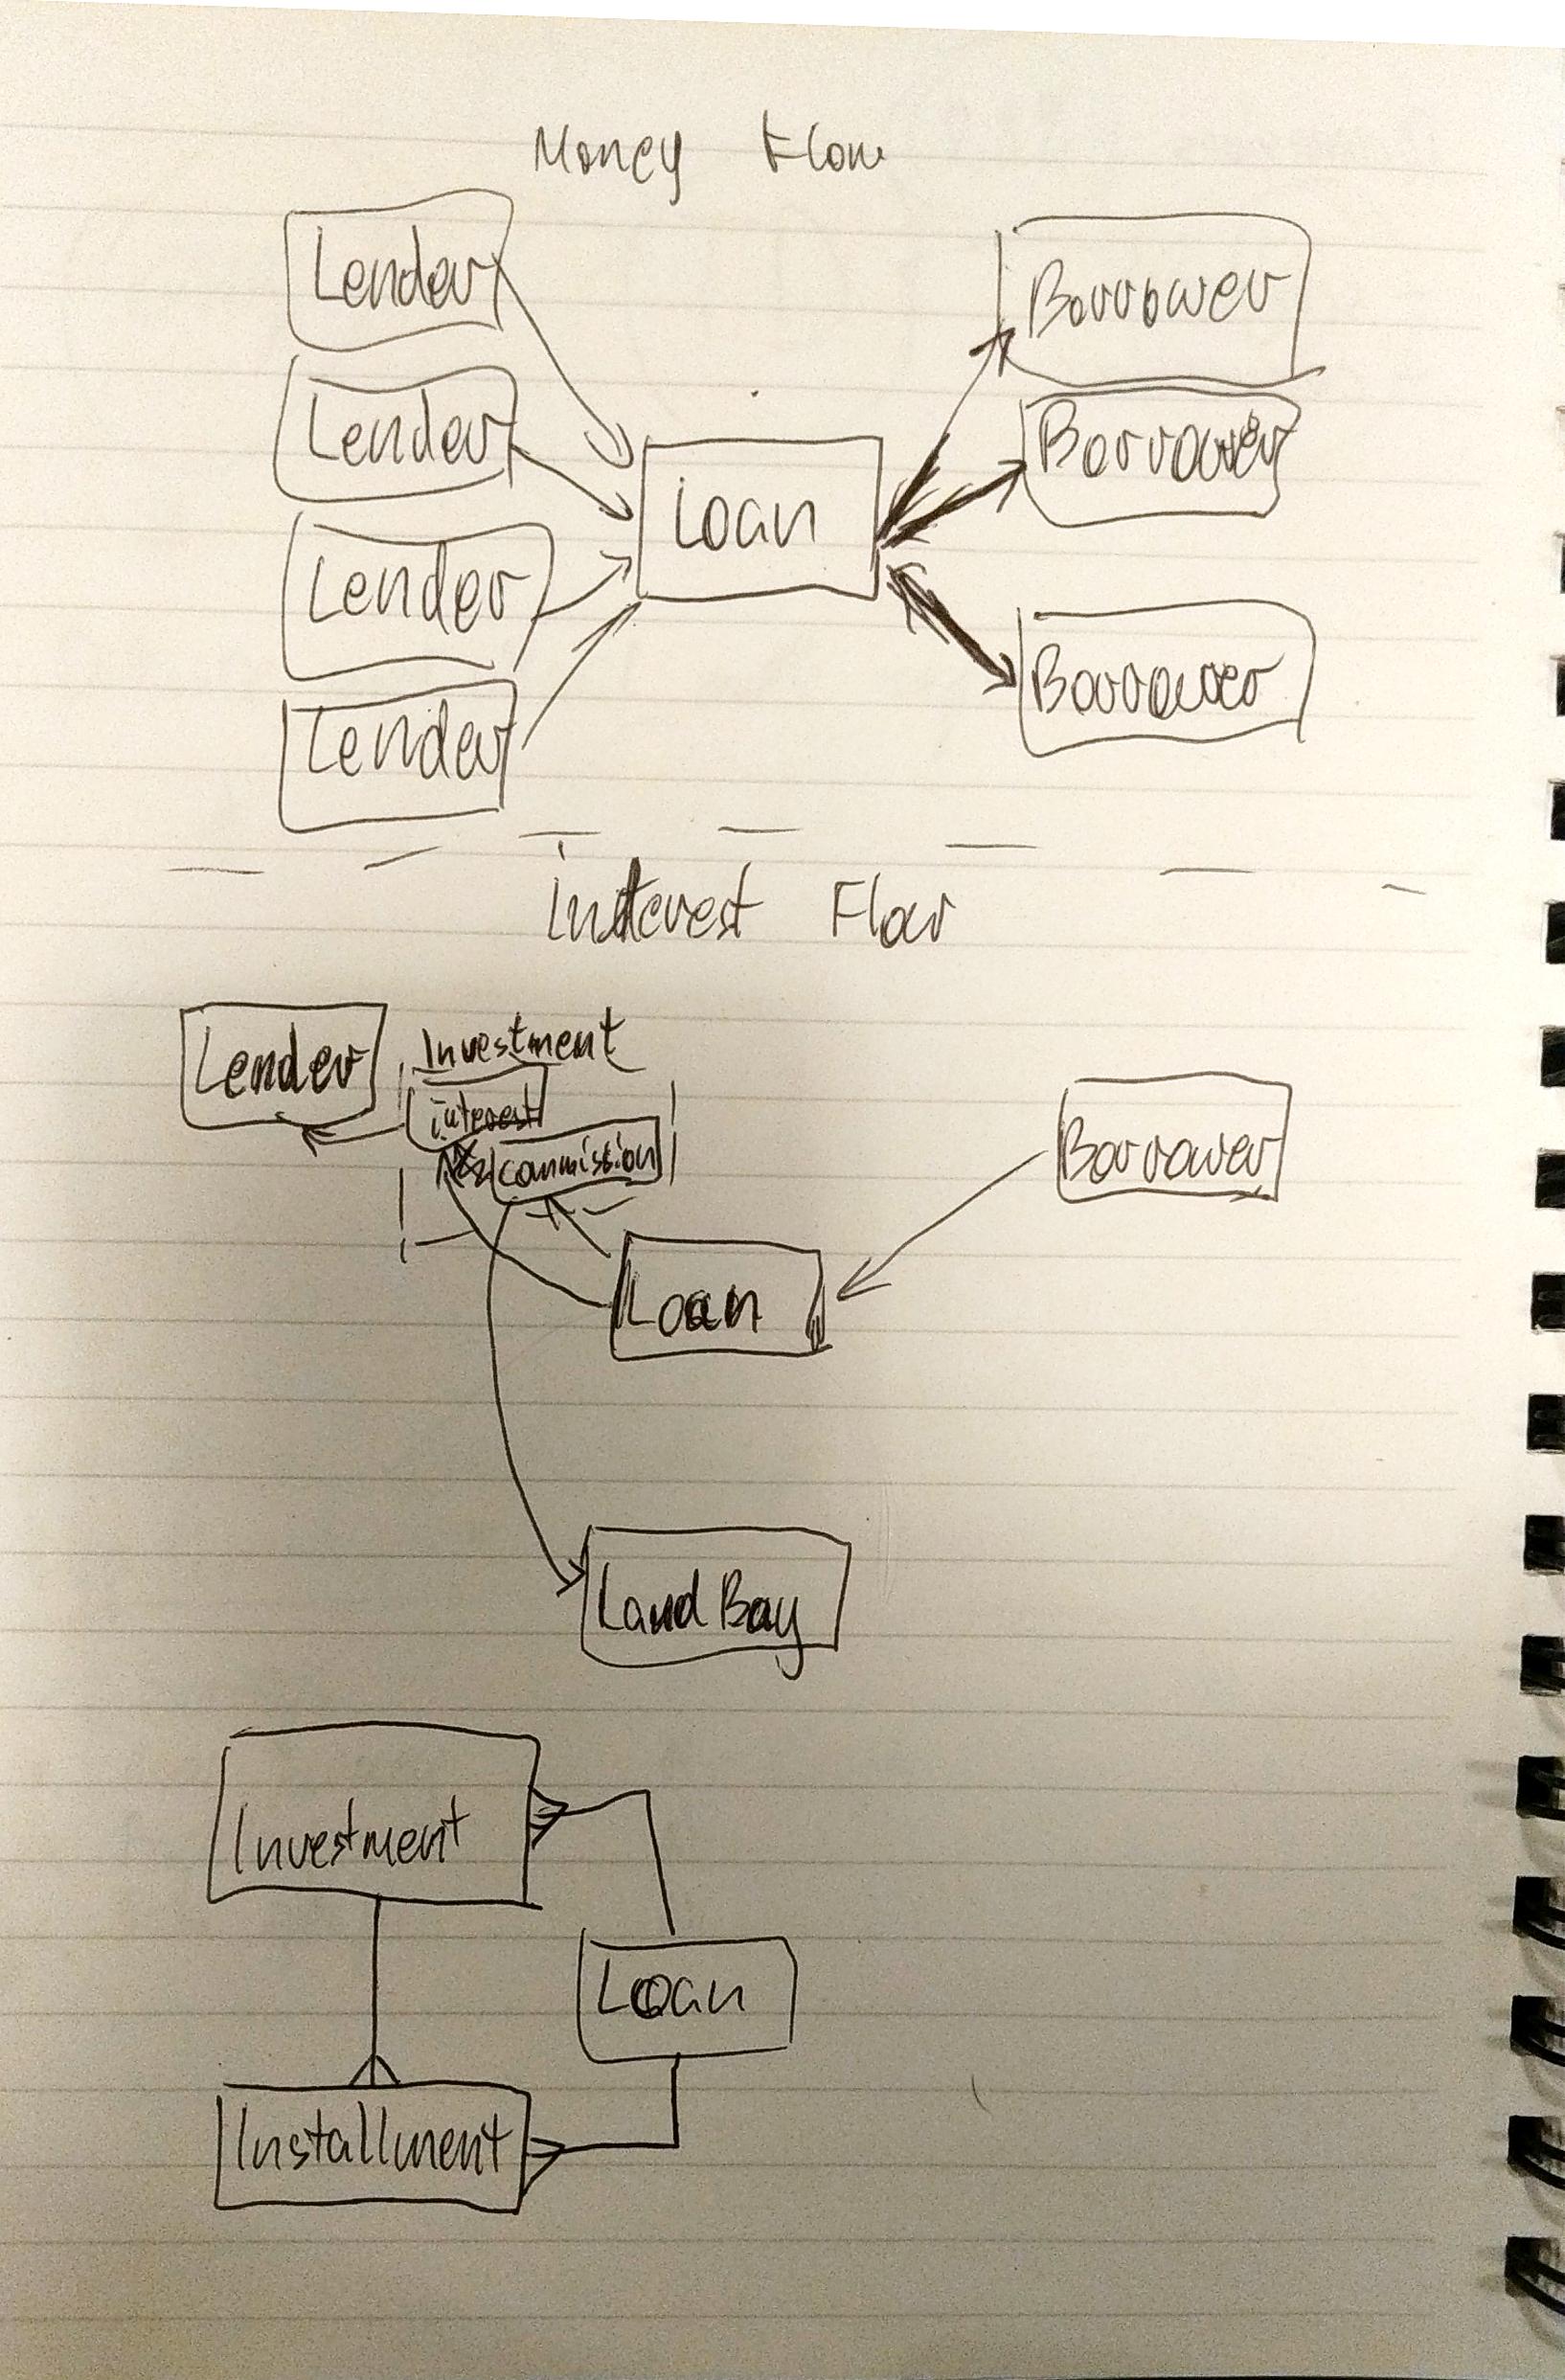 Money Flow
Lender
Borrower
Lender
Borrower
Loan
Lender
Borrower
Lender
Interest Flow
Lender
Investment
interest
commission
Borrower
Loan
LandBay
Investment
Loan
Installment